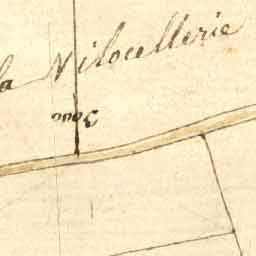 la Vilocellerie
5000